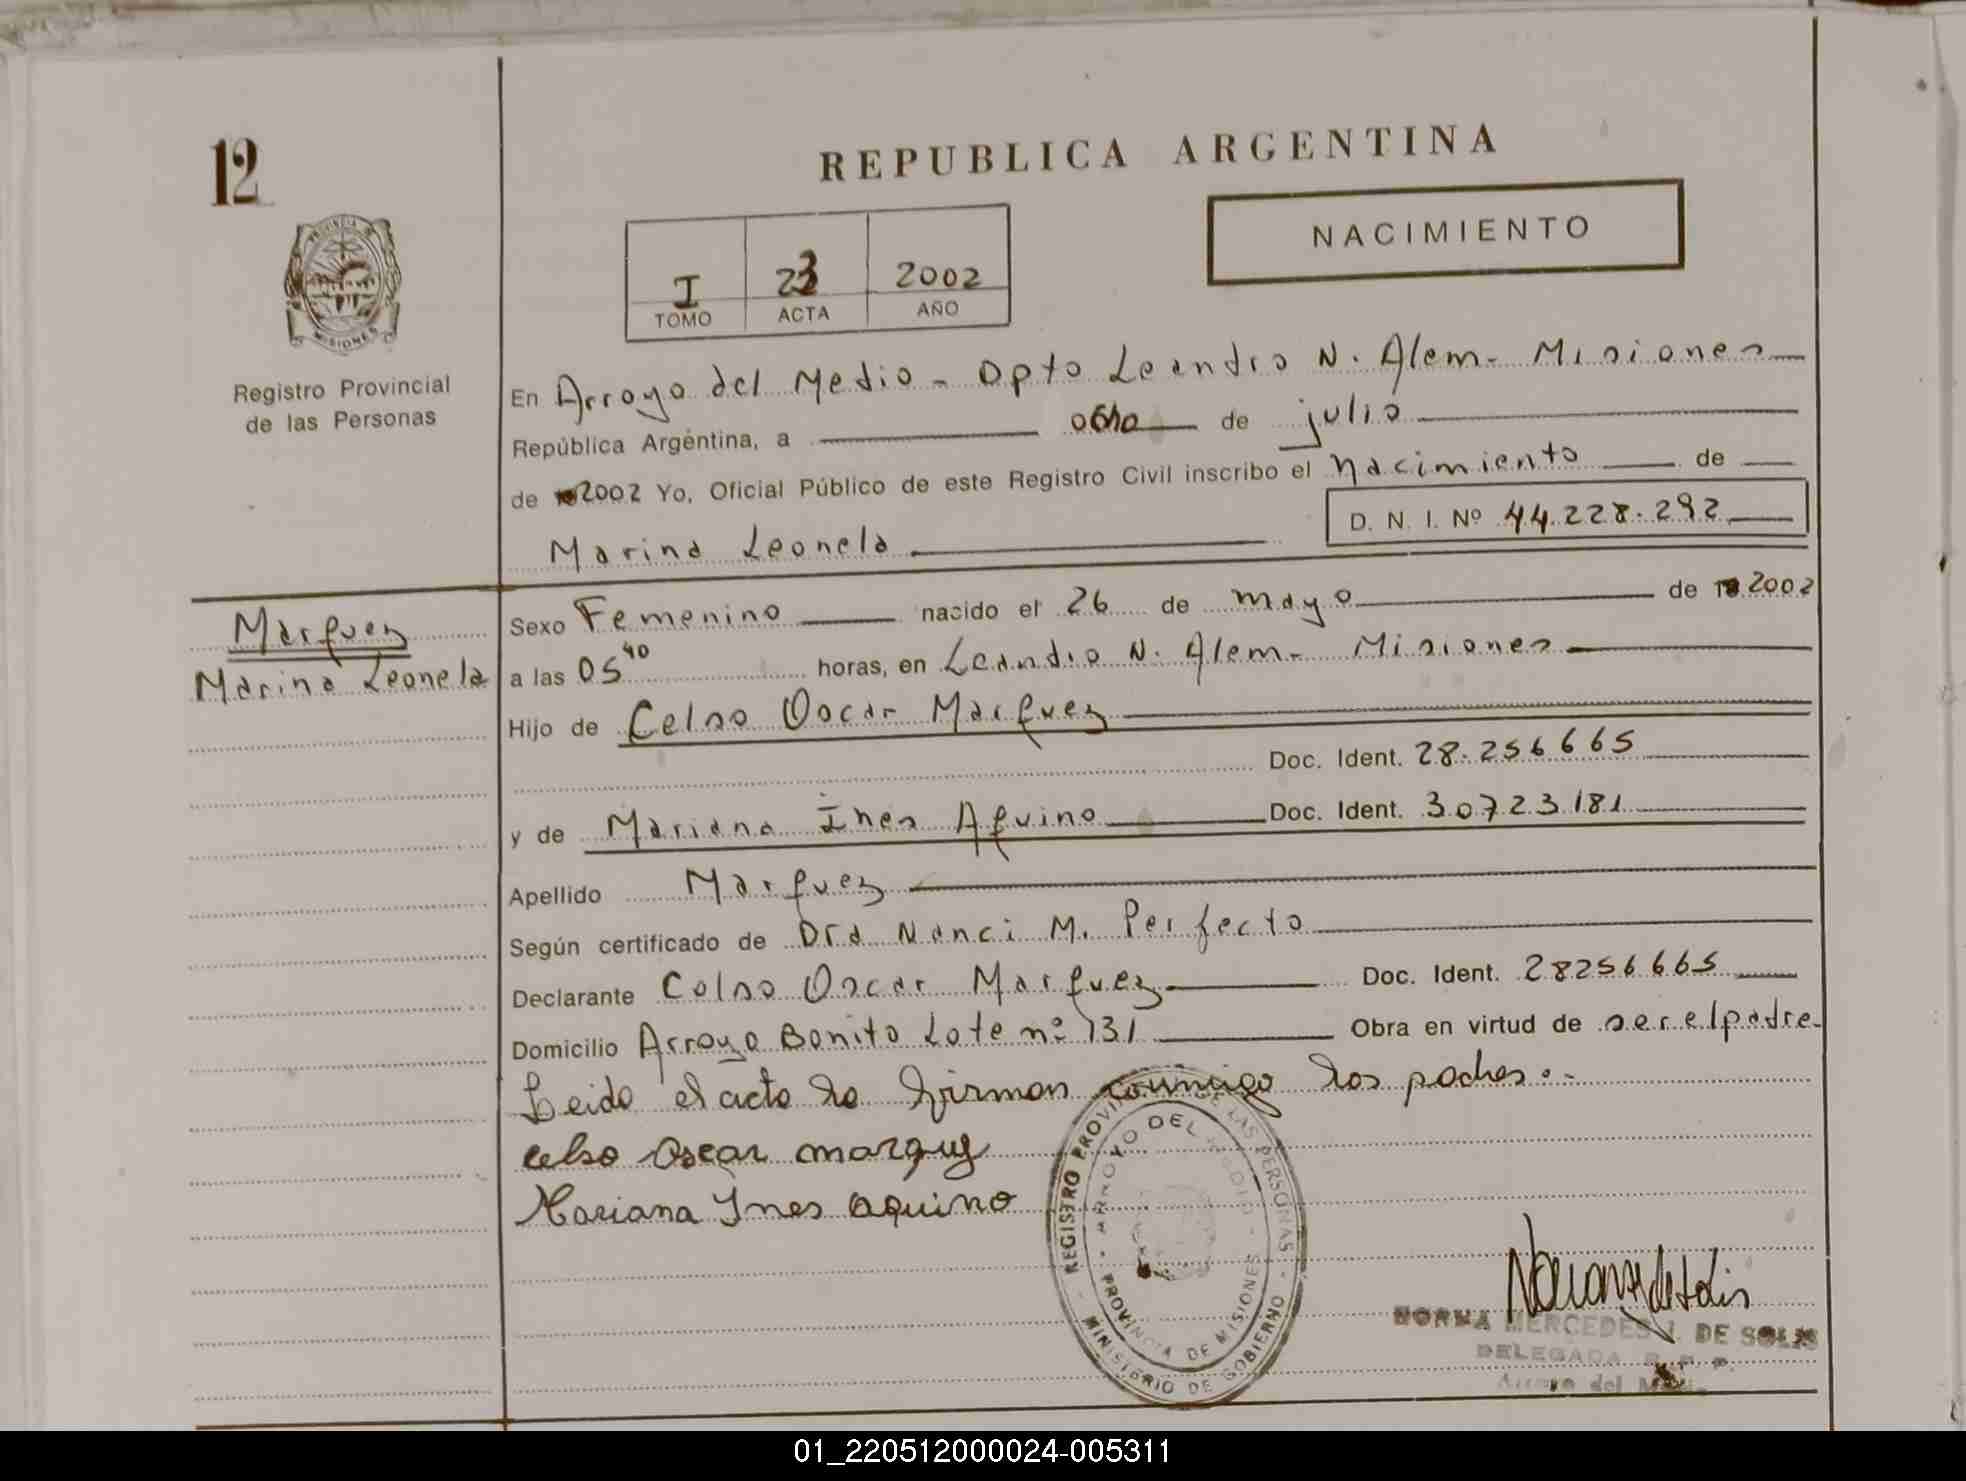 12
REPUBLICA ARGENTINA
NACIMIENTO
I 23 2002
TOMO ACTA AÑO
PROVINCIA DE
MISIONES
Registro Provincial
de las Personas
En Arroyo del Medio - Dpto Leandro N. Alem - Misiones
República Argentina, a ocho de julio
de 2002 Yo, Oficial Público de este Registro Civil inscribo el nacimiento de
D. N. I. Nº 44.228.292
Marina Leonela
Marquez
Marina Leonela
Sexo Femenino nacido el 26 de mayo de 2002
a las 05 40 horas, en Leandro N. Alem - Misiones
Hijo de Celso Oscar Marquez
Doc. Ident. 28.256665
y de Mariana Ines Aquino Doc. Ident. 30723181
Apellido Marquez
Según certificado de Dra Nanci M. Perfecto
Declarante Celso Oscar Marquez Doc. Ident. 28256665
Domicilio Arroyo Bonito Lote nº 131 Obra en virtud de ser el padre
Leido el acta la firman conmigo los padres.-
celso oscar marquez
Mariana Ines aquino
REGISTRO PROVINCIAL DE LAS PERSONAS - MINISTERIO DE GOBIERNO -
ARROYO DEL MEDIO - PROVINCIA DE MISIONES -
NORMA MERCEDES J. DE SOLIS
DELEGADA R. P. P.
Arroyo del Medio
01_220512000024-005311